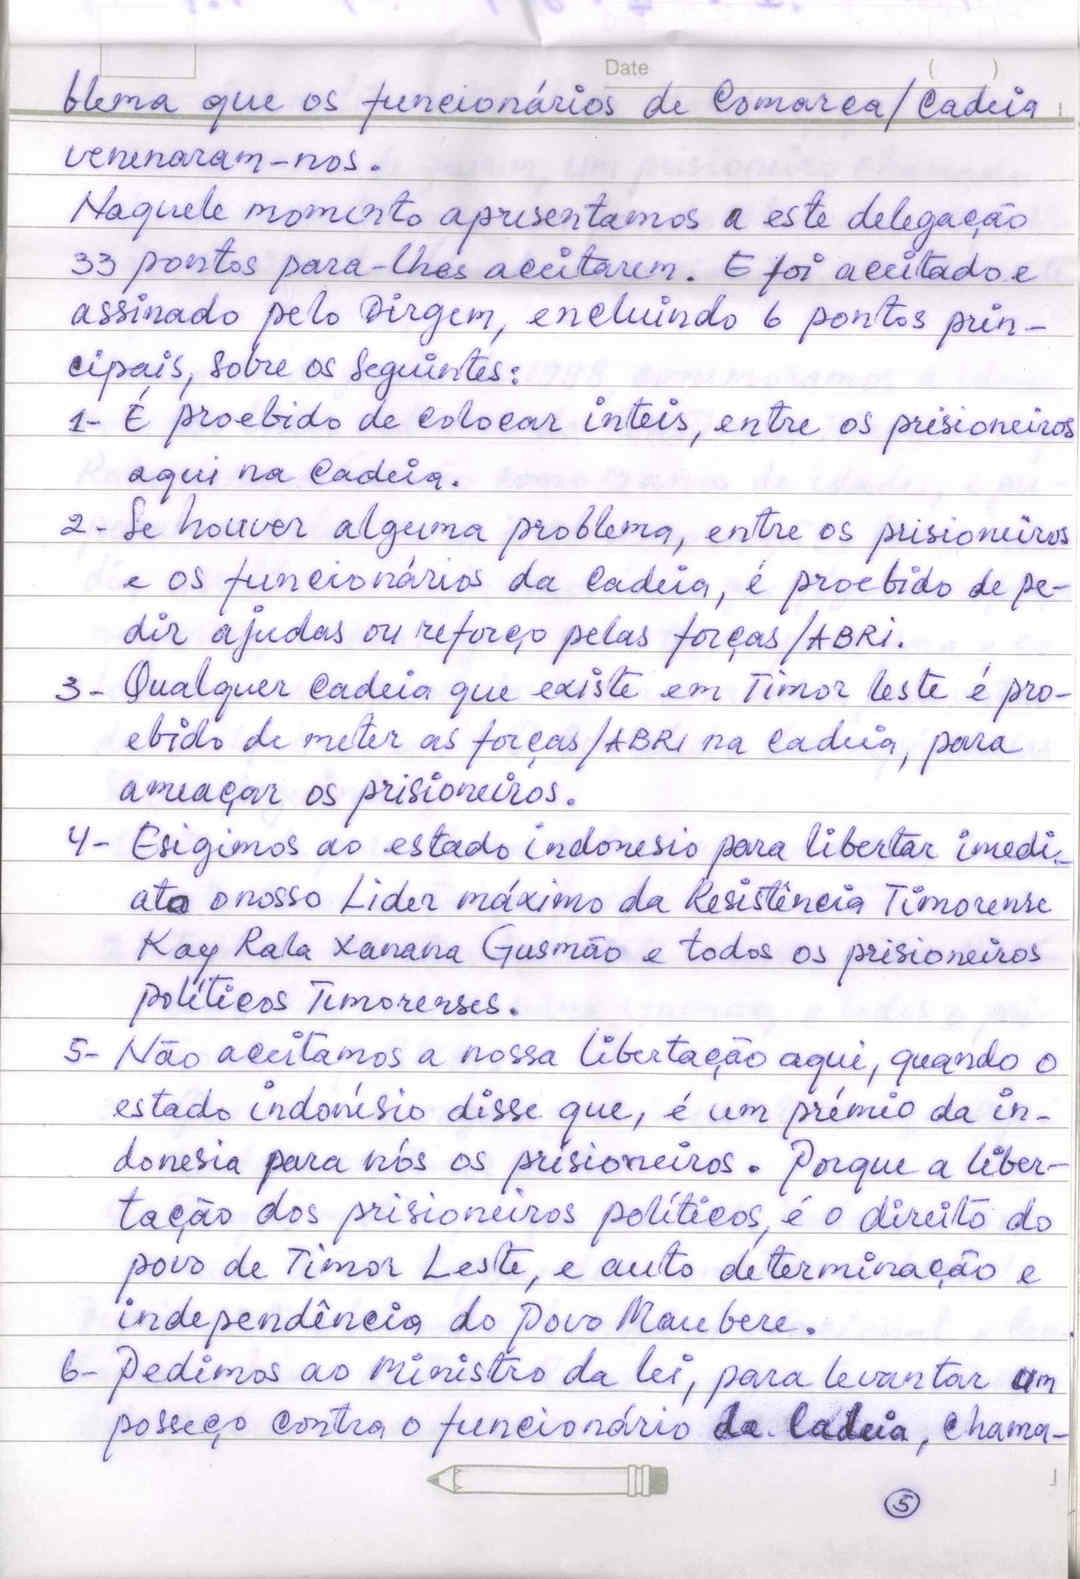 Date ( )
blema que os funcionários de Comarca/Cadeia
venenaram-nos.
Naquele momento apresentamos a este delegação
33 pontos para-lhes aceitarem. E foi aceitado e
assinado pelo Dirgem, encluindo 6 pontos prin-
cipais, sobre os seguintes:
1- É proebido de colocar inteis, entre os prisioneiros
aqui na Cadeia.
2- Se houver alguma problema, entre os prisioneiros
e os funcionários da Cadeia, é proebido de pe-
dir ajudas ou reforço pelas forças/ABRI.
3- Qualquer Cadeia que existe em Timor leste é pro-
ebido de meter as forças/ABRI na Cadeia, para
ameaçar os prisioneiros.
4- Esigimos ao estado indonesio para libertar imedi-
ato o nosso Lider máximo da Resistência Timorense
Kay Rala Xanana Gusmão e todos os prisioneiros
políticos Timorenses.
5- Não aceitamos a nossa libertação aqui, quando o
estado indonésio disse que, é um prémio da in-
donesia para nós os prisioneiros. Porque a liber-
tação dos prisioneiros políticos, é o direito do
povo de Timor Leste, e auto determinação e
independência do Povo Maubere.
6- Pedimos ao Ministro da lei, para levantar um
posseço contra o funcionário da Cadeia, chama-
5